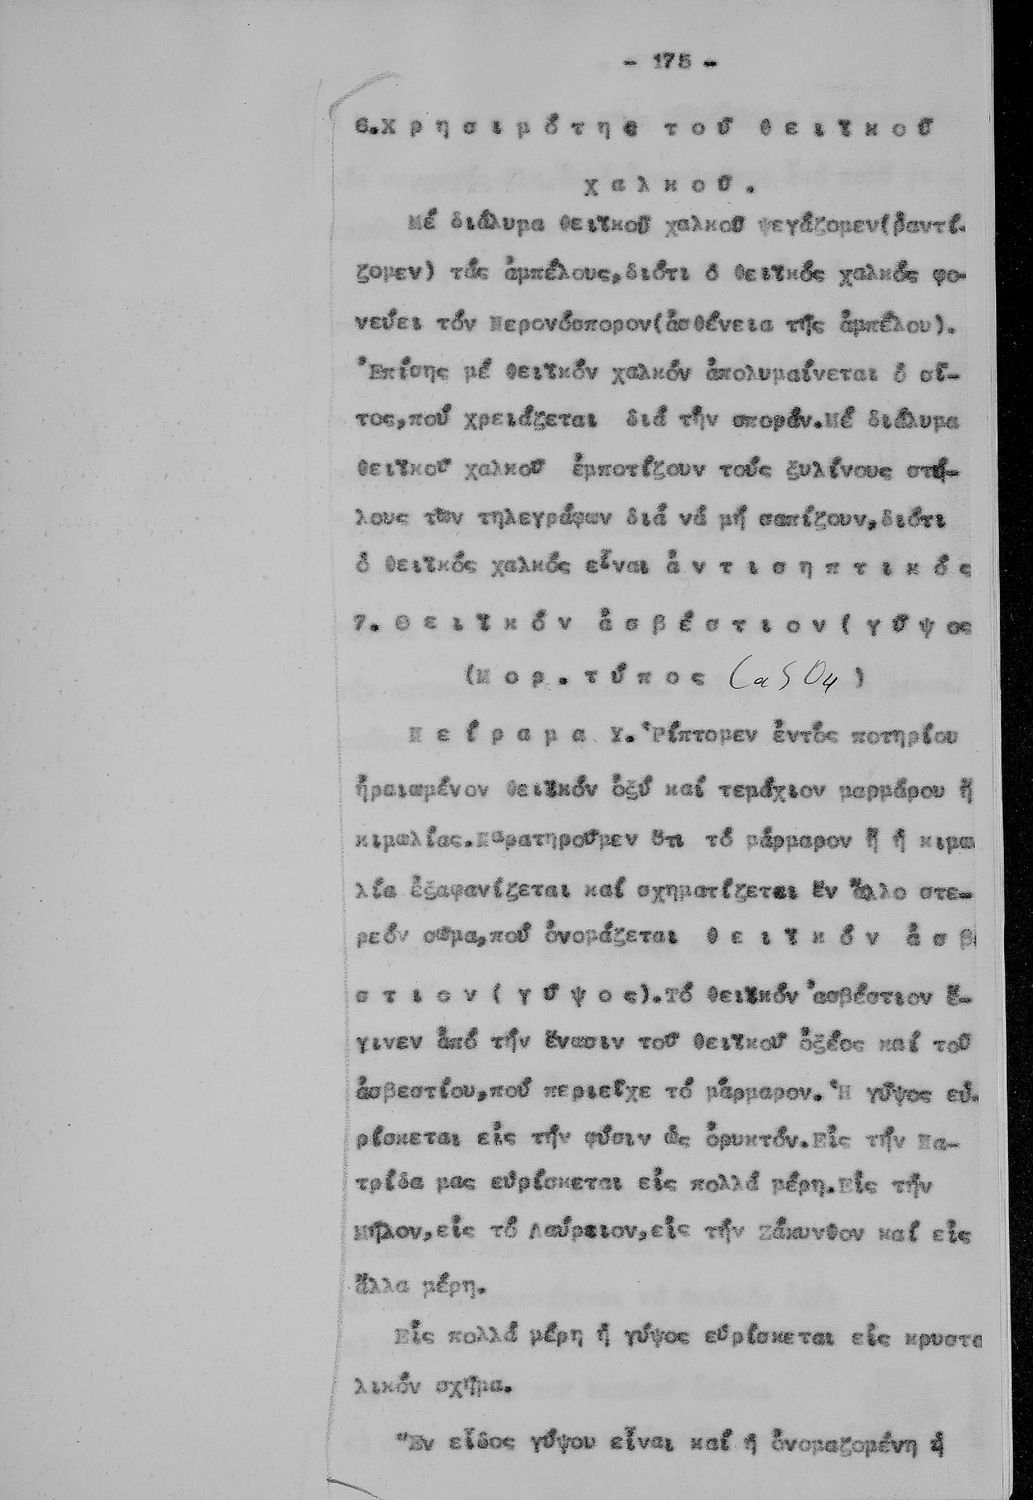 - 175 -
6.Χ ρ η σ ι μ ό τ η ς τ ο ῦ θ ε ι ϊ κ ο ῦ
χ α λ κ ο ῦ .
Μέ διάλυμα θειϊκοῦ χαλκοῦ ψεγάζομεν(ραντί-
ζομεν) τάς ἀμπέλους,διότι ὁ θειϊκός χαλκός φο-
νεύει τόν Περονόσπορον(ἀσθένεια τῆς ἀμπέλου).
Ἐπίσης μέ θειϊκόν χαλκόν ἀπολυμαίνεται ὁ σῖ-
τος,πού χρειάζεται διά τήν σποράν.Μέ διάλυμα
θειϊκοῦ χαλκοῦ ἐμποτίζουν τούς ξυλίνους στή-
λους τῶν τηλεγράφων διά νά μή σαπίζουν,διότι
ὁ θειϊκός χαλκός εἶναι ἀ ν τ ι σ η π τ ι κ ό ς
7. Θ ε ι ϊ κ ό ν ἀ σ β έ σ τ ι ο ν ( γ ύ ψ ος
(Μ ο ρ . τ ύ π ο ς CaSO4 )
Π ε ί ρ α μ α Υ. Ῥίπτομεν ἐντός ποτηρίου
ἠραιωμένον θειϊκόν ὀξύ καί τεμάχιον μαρμάρου ἤ
κιμωλίας.Παρατηροῦμεν ὅτι τό μάρμαρον ἤ ἡ κιμω
λία ἐξαφανίζεται καί σχηματίζεται ἕν ἄλλο στε-
ρεόν σῶμα,πού ὀνομάζεται θ ε ι ϊ κ ό ν ἀ σ β
σ τ ι ο ν ( γ ύ ψ ο ς).Τό θειϊκόν ἀσβέστιον ἔ-
γινεν ἀπό τήν ἕνωσιν τοῦ θειϊκοῦ ὀξέος καί τοῦ
ἀσβεστίου,πού περιεῖχε τό μάρμαρον. Ἡ γύψος εὑ-
ρίσκεται εἰς τήν φύσιν ὡς ὀρυκτόν.Εἰς τήν Πα-
τρίδα μας εὑρίσκεται εἰς πολλά μέρη.Εἰς τήν
Μῆλον,εἰς τό Λαύρειον,εἰς τήν Ζάκυνθον καί εἰς
ἄλλα μέρη.
Εἰς πολλά μέρη ἡ γύψος εὑρίσκεται εἰς κρυστα
λικόν σχῆμα.
Ἕν εἶδος γύψου εἶναι καί ἡ ὀνομαζομένη ἡ